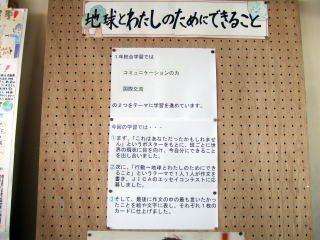 地球とわたしのためにできること
1年総合学習では
コミュニケーションの力
国際交流
の2つをテーマに学習を進めています。
今回の学習では・・・
①まず、「これはあなただったかもしれません」というポスターをもとに、班ごとに世界の現状に目を向け、今自分にできることを出し合いました。
②次に、「行動－地球とわたしのためにできること」というテーマで1人1人が作文を書き、JICAのエッセイコンテストに応募しました。
③そして、最後に作文の中の最も言いたかったことを絵や文字に表し、それぞれ1枚のカードに仕上げました。